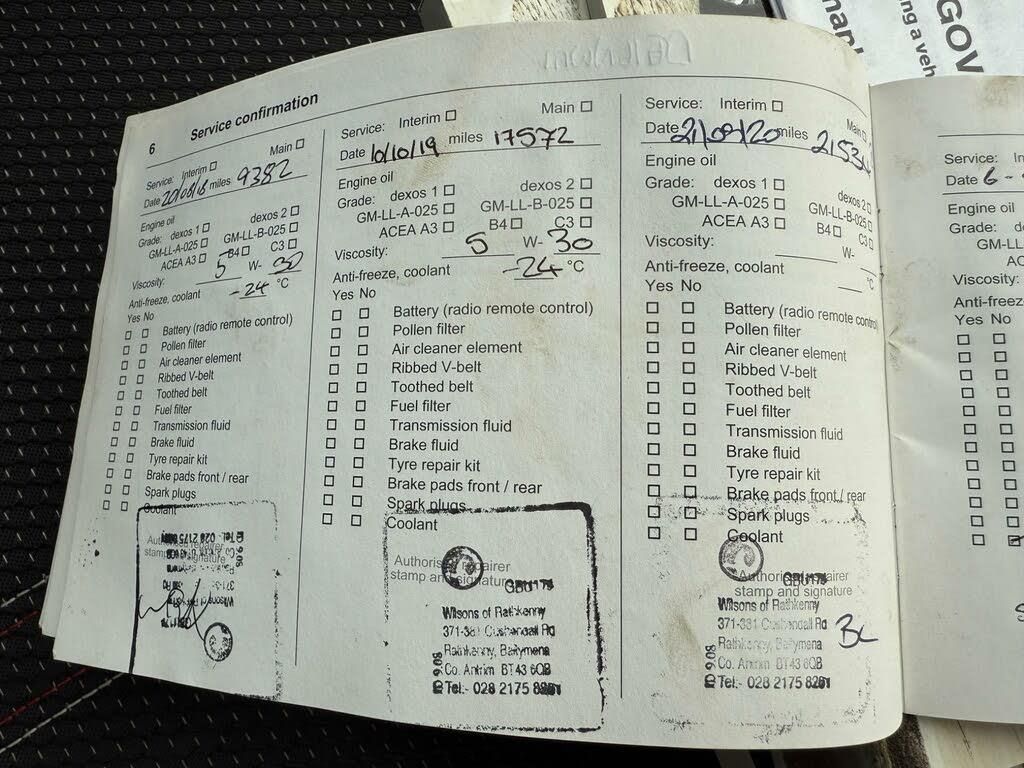 6 Service confirmation
Service: Interim Main
Date 20/08/18 miles 9382
Engine oil
Grade: dexos 1 dexos 2
GM-LL-A-025 GM-LL-B-025
ACEA A3 B4 C3
Viscosity: 5 W- 30
Anti-freeze, coolant -24 °C
Yes No
Battery (radio remote control)
Pollen filter
Air cleaner element
Ribbed V-belt
Toothed belt
Fuel filter
Transmission fluid
Brake fluid
Tyre repair kit
Brake pads front / rear
Spark plugs
Coolant
Service: Interim Main
Date 10/10/19 miles 17572
Engine oil
Grade: dexos 1 dexos 2
GM-LL-A-025 GM-LL-B-025
ACEA A3 B4 C3
Viscosity: 5 W- 30
Anti-freeze, coolant -24 °C
Yes No
Battery (radio remote control)
Pollen filter
Air cleaner element
Ribbed V-belt
Toothed belt
Fuel filter
Transmission fluid
Brake fluid
Tyre repair kit
Brake pads front / rear
Spark plugs
Coolant
Authorised repairer
stamp and signature
GB01179
Wilsons of Rathkenny
371-381 Cushendall Rd
Rathkenny, Ballymena
Co. Antrim BT43 6QB
Tel:- 028 2175 8261
Service: Interim Main
Date 21/09/20 miles 21534
Engine oil
Grade: dexos 1 dexos 2
GM-LL-A-025 GM-LL-B-025
ACEA A3 B4 C3
Viscosity: W-
Anti-freeze, coolant °C
Yes No
Battery (radio remote control)
Pollen filter
Air cleaner element
Ribbed V-belt
Toothed belt
Fuel filter
Transmission fluid
Brake fluid
Tyre repair kit
Brake pads front / rear
Spark plugs
Coolant
Authorised repairer
stamp and signature
Wilsons of Rathkenny
371-381 Cushendall Rd
Rathkenny, Ballymena
Co. Antrim BT43 6QB
Tel:- 028 2175 8261
Service: In
Date 6 -
Engine oil
Grade: de
GM-LL
ACEA
Viscosity:
Anti-freez
Yes No
GOV
ng a veh